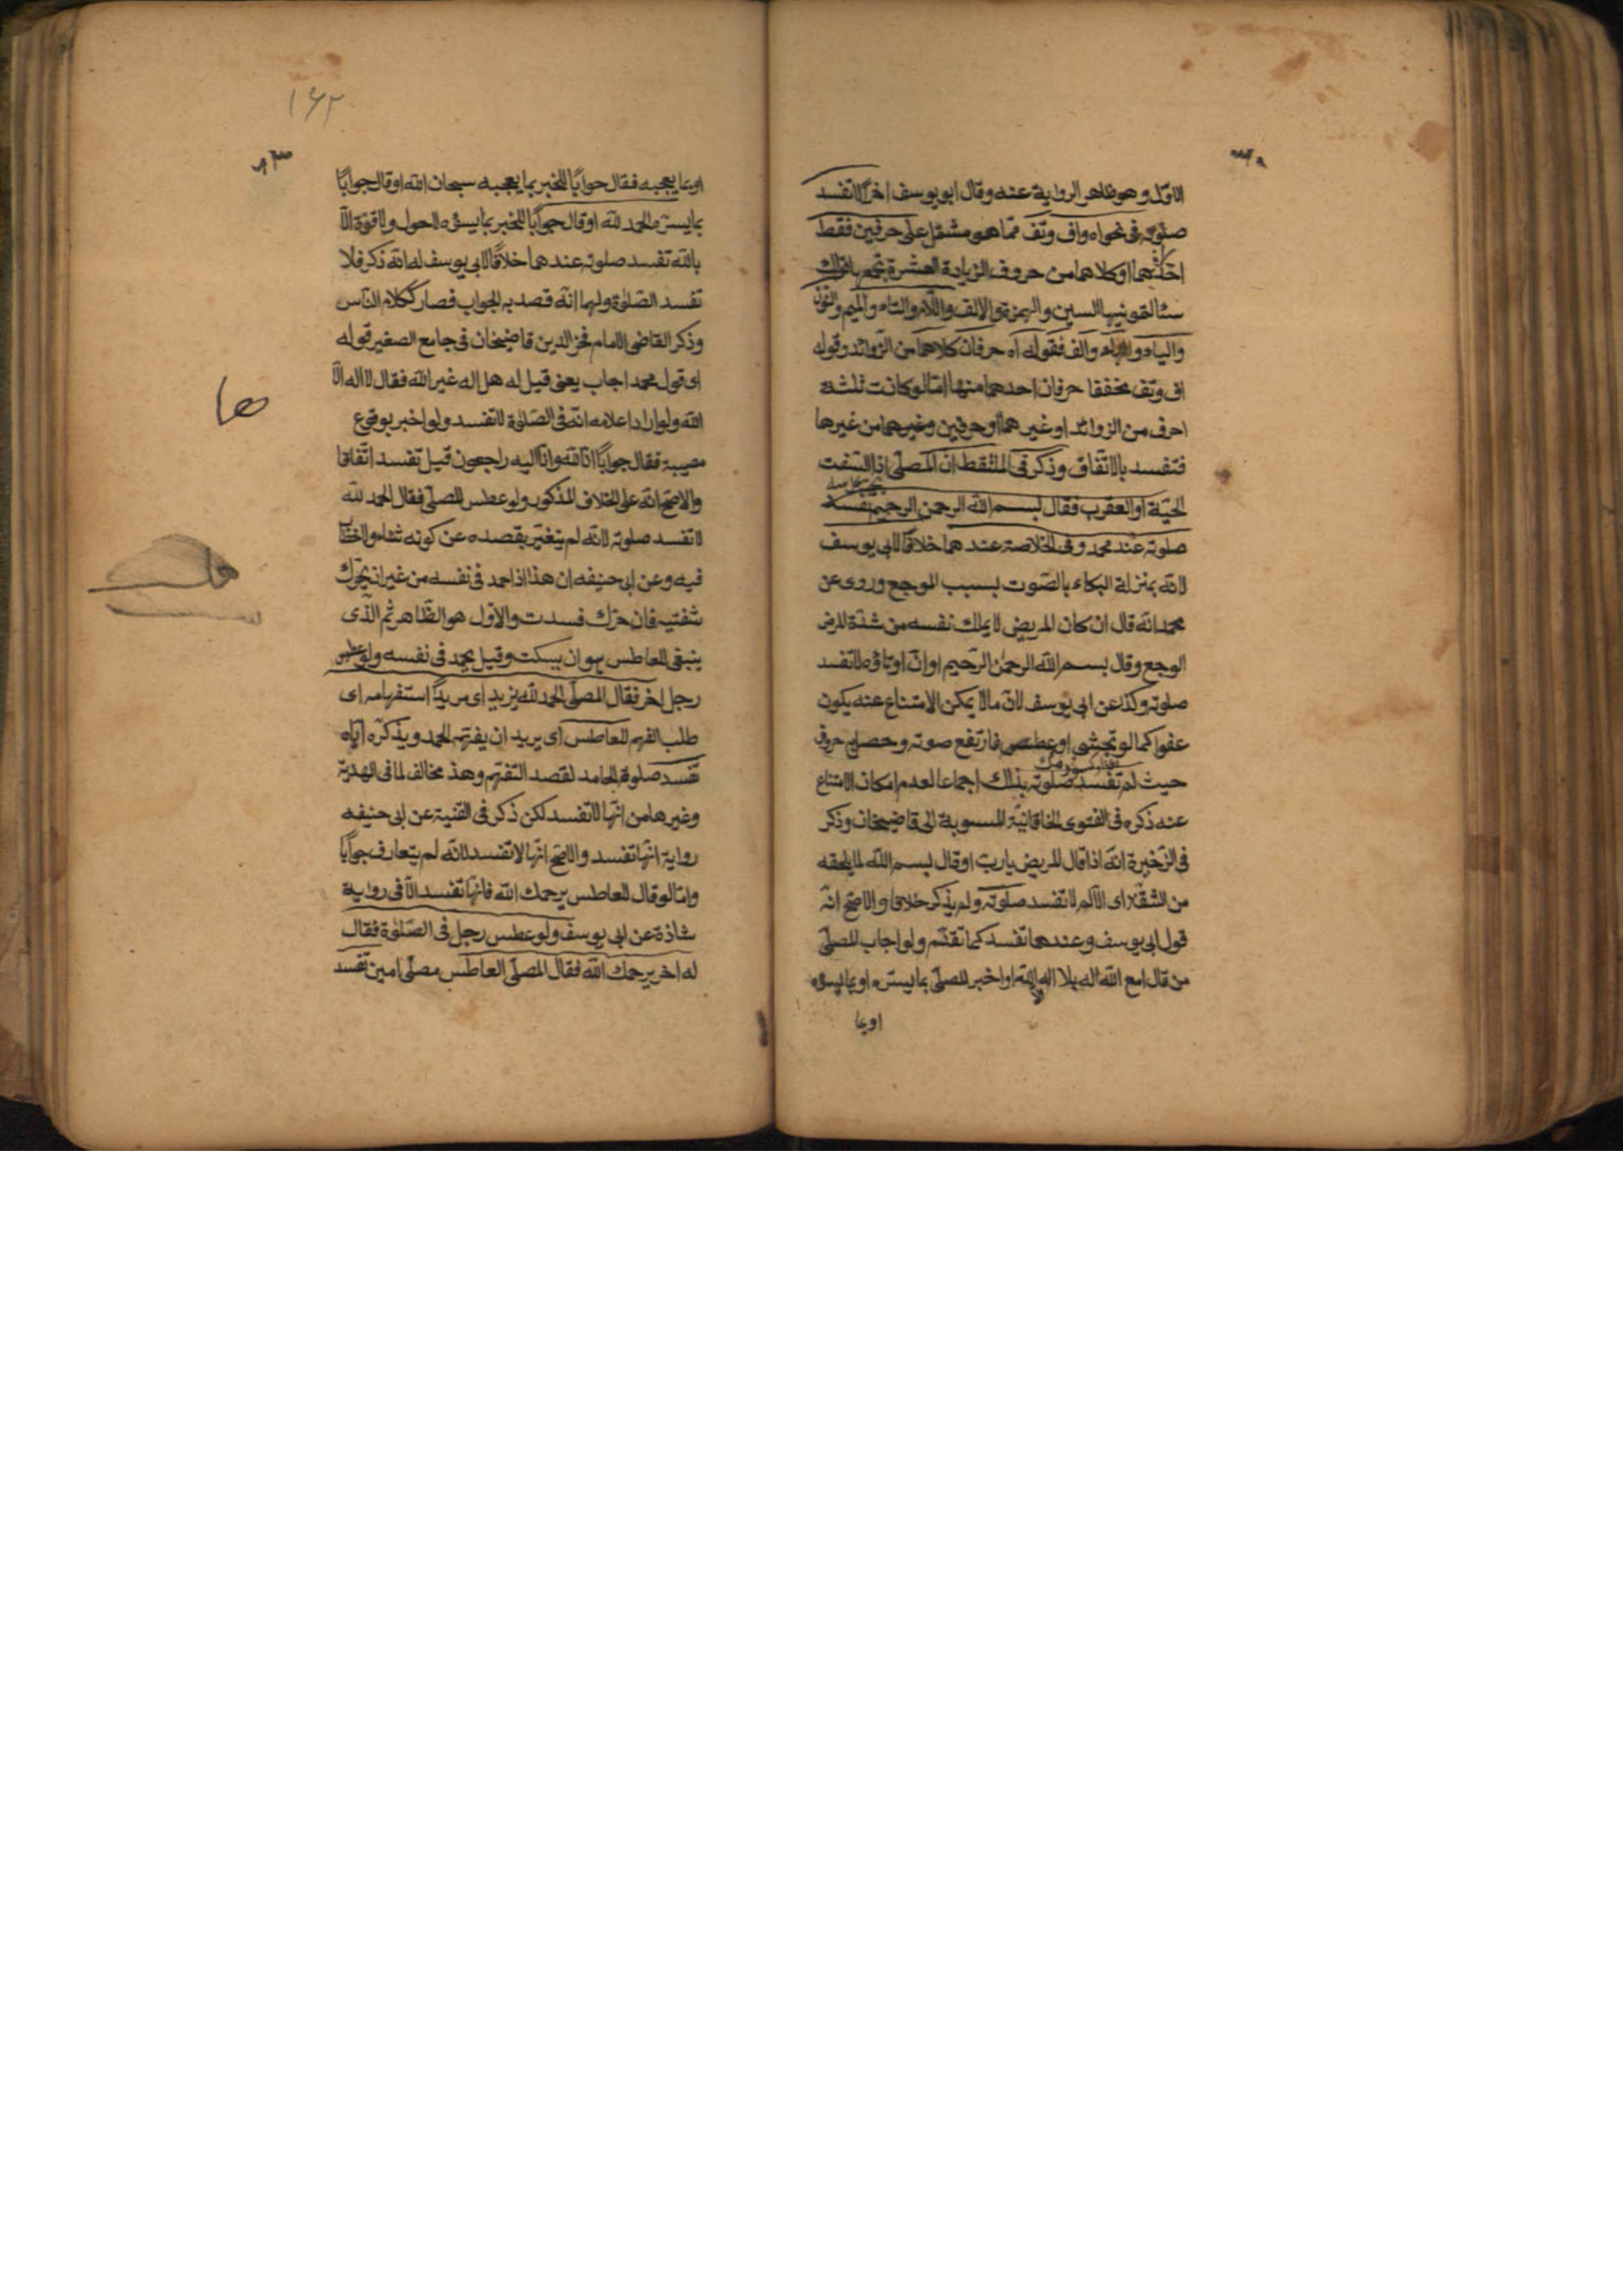 الاوّل وهو ظاهر الرواية عنه وقال ابو يوسف اخرًا لا تفسد
صلوته فى نحو اه واف وتف ممّا هو مشتمل على حرفين فقط
احدهما او كلاهما من حروف الزيادة العشرة يجمع قولك
سئالتمونيها السين والهمزة والالف واللام والتاء والميم والنون
والياء والهاء والف فقوله اه حرفان كلاهما من الزوائد وقوله
اف وتف مخففا حرفان احدهما منها امّا لو كانت ثلثة
احرف من الزوائد او غيرهما او حرفين وغيرهما من غيرها
فتفسد بالاتّفاق وذكر فى الملتقط انّ المصلّى اذا السفت
الحيّة او العقرب فقال بسم الله الرحمن الرحيم تفسد
صلوته عند محمد وفى الخلاصة عندهما خلافًا لابى يوسف
لانّه بمنزلة البكاء بالصّوت بسبب الوجع وروى عن
محمد انّه قال ان كان المريض لا يملك نفسه من شدّة المرض
الوجع وقال بسم الله الرحمن الرّحيم او انّ او تاوّه لا تفسد
صلوته وكذا عن ابى يوسف لانّ ما لا يمكن الامتناع عنه يكون
عفوا كما لو تجشى او عطس فارتفع صوته وحصل به حروف
حيث لم تفسد صلوته بذلك اجماعا لعدم امكان الامتناع
عنه ذكره فى الفتوى الخاقانيّة المنسوبة الى قاضيخان وذكر
فى الزّخيرة انّه اذا قال المريض يا ربّ او قال بسم الله لما يلحقه
من المشقّة اى الالم لا تفسد صلوته ولم يذكر خلافا والاصحّ انّه
قول ابى يوسف وعندهما تفسد كما تقدّم ولو اجاب المصلّى
من قال امع الله اله بلا اله الا الله او اخبر المصلّى بما يسرّه او بما يسؤه
او بما
١٦٢
او بما يعجبه فقال جوابًا للمخبر بما يعجبه سبحان الله او قال جوابًا
بما يسرّه الحمد لله او قال جوابًا للمخبر بما يسؤه لا حول ولا قوّة الّا
بالله تفسد صلوته عندهما خلافًا لابى يوسف له انّه ذكر فلا
تفسد الصّلوة ولهما انّه قصد به الجواب فصار ككلام النّاس
وذكر القاضى الامام فخر الدين قاضيخان فى جامع الصغير قوله
اى قول محمد اجاب يعنى قيل له هل اله غير الله فقال لا اله الّا
الله ولو اراد اعلامه انّه فى الصّلوة لا تفسد ولو اخبر بوقوع
مصيبة فقال جوابًا انّا لله وانّا اليه راجعون قيل تفسد اتّفاقا
والاصحّ انّه على الخلاف المذكور ولو عطس المصلّى فقال الحمد لله
لا تفسد صلوته لانّه لم يتغيّر بقصده عن كونه ثناء ولا خفاء
فيه وعن ابى حنيفه ان هذا اذا حمد فى نفسه من غير ان يحرّك
شفتيه فان حرّك فسدت والاوّل هو الظّاهر ثم الّذى
ينبغى للعاطس هو ان يسكت وقيل يحمد فى نفسه ولو عطس
رجل اخر فقال المصلّى الحمد لله يريد اى مريدًا استفهامه اى
طلب الفهم للعاطس اى يريد ان يفهّم الحمد ويذكّره ايّاه
تفسد صلوة الحامد لقصد التّفهيم وهذ مخالف لما فى الهدية
وغيرها من انّها لا تفسد لكن ذكر فى القنية عن ابى حنيفه
رواية انّها تفسد والاصحّ انّها لا تفسد لانّه لم يتعارف جوابًا
وامّا لو قال للعاطس يرحمك الله فانّها تفسد الّا فى رواية
شاذة عن ابى يوسف ولو عطس رجل فى الصّلوة فقال
له اخر يرحمك الله فقال المصلّى العاطس مصلّى امين تفسد
ها